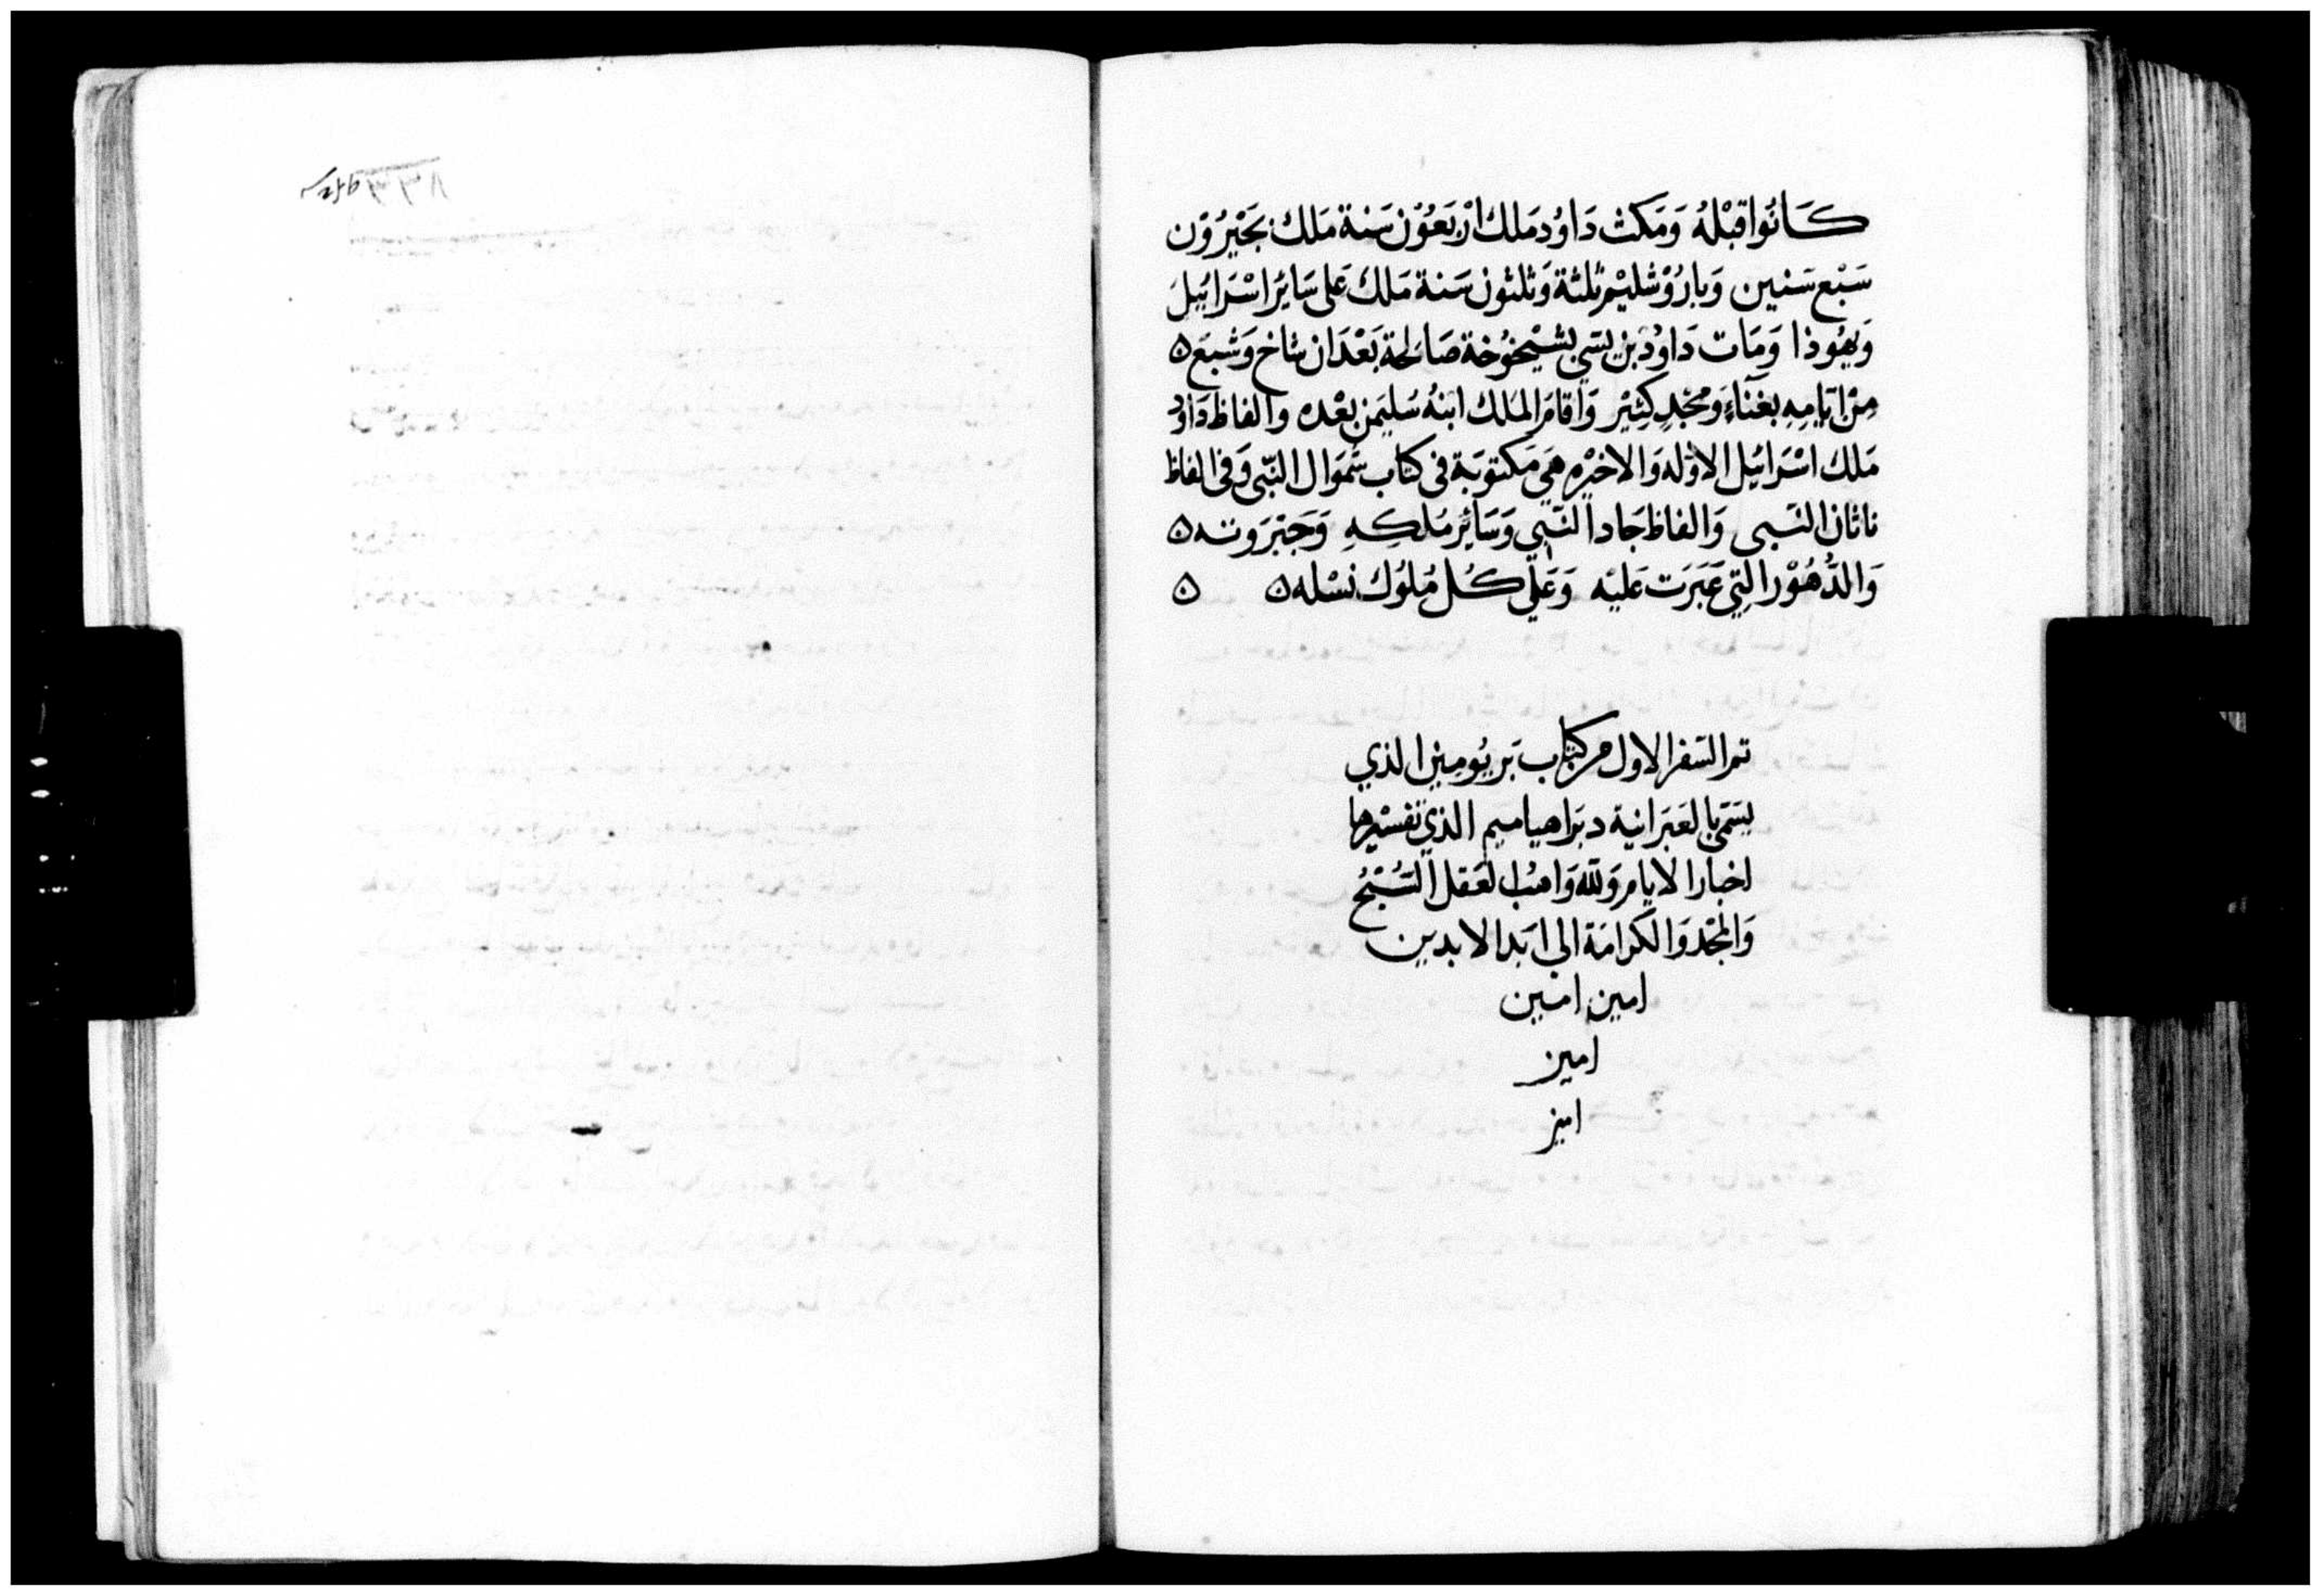 كَانُوا قبْلهُ وَمَكث دَاوُد مَلك ارْبَعُوْن سَنة مَلك بجَيْرُوْن
سَبْع سَنين وَبارُوْشليْم ثلثة وَثلثون سَنة مَلك عَلى سَائر اسْرَائيلَ
وَيهُوذا وَمَات دَاوُد بن يسَي بشيْخوُخة صَالحة بَعْدَ ان شاخ وَشبعَ ه
مِنْ ايَّامِهِ بغنَآءٍ وَمجْدٍ كثِيْر وَاقامَ المَلك ابنهُ سُليمَن بعْده والفاظ دَاوُد
مَلك اسْرَائيل الاوْله وَالاخيْره هيَ مَكتوبَة في كتاب شمَوال النّبي وَفي الفاظ
ناثان النَبي وَالفاظ جَاد النَّبِي وَسَائِر مُلكِهِ وَجَبَروَته ه
وَالدُّهُوْر التِي عَبَرَت عَليْه وَعَلَى كُل مُلوُك نسْله ه ه
تم السَفر الاول من كتاب بَريُومِين الذي
يسَمّى بالعَبرَانية دبَراهياميم الذي تفسْيرها
اخبار الايام وَلله وَاهبُ العَقل التسْبيْحُ
وَالمجْد وَالكرامَة الى ابَد الابدين
امين امين
امين
امين